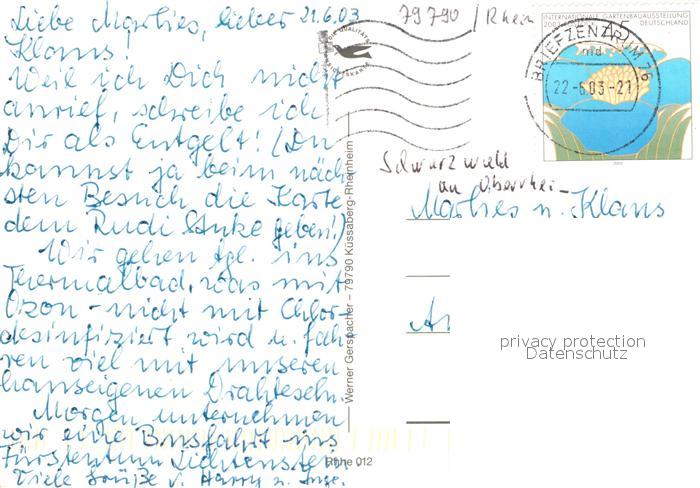 Liebe Marlies, lieber 21.6.03
Klaus!
Weil ich Dich nicht
anrief, schreibe ich
Dir als Entgelt! (Du
kannst ja beim näch-
sten Besuch die Karte
dem Rudi Anke geben!)
Wir gehen tgl. ins
Thermalbad, was mit
Ozon - nicht mit Chlor-
desinfiziert wird u. fah-
ren viel mit unseren
hauseigenen Drahteseln.
Morgen unternehmen
wir eine Busfahrt ins
Fürstentum Lichtenstein
Viele Grüße v. Harry u. Inge.
79790 / Rhein
Werner Gerspacher – 79790 Küssaberg-Rheinheim
Rhhe 012
INTERNATIONALE GARTENBAUAUSSTELLUNG
2003
DEUTSCHLAND
BRIEFZENTRUM 76
md
22-6.03-21
Schwarzwald
am Oberrhei-
Marlies u. Klaus
privacy protection
Datenschutz